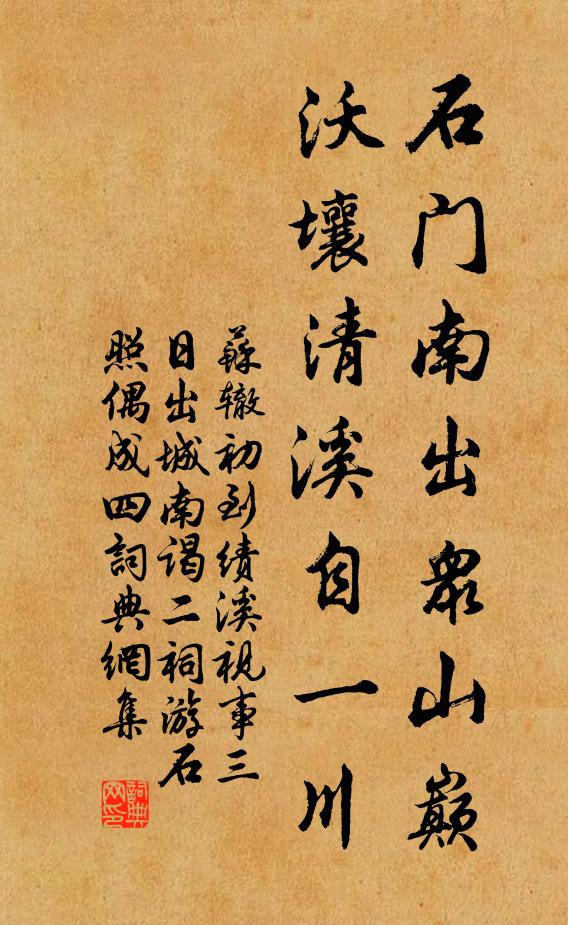 石门南出眾山巔
沃壤清溪自一川
蘇辙初到绩溪視事三
日出城南谒二祠游石
照偶成四詞典網集
詞典網印